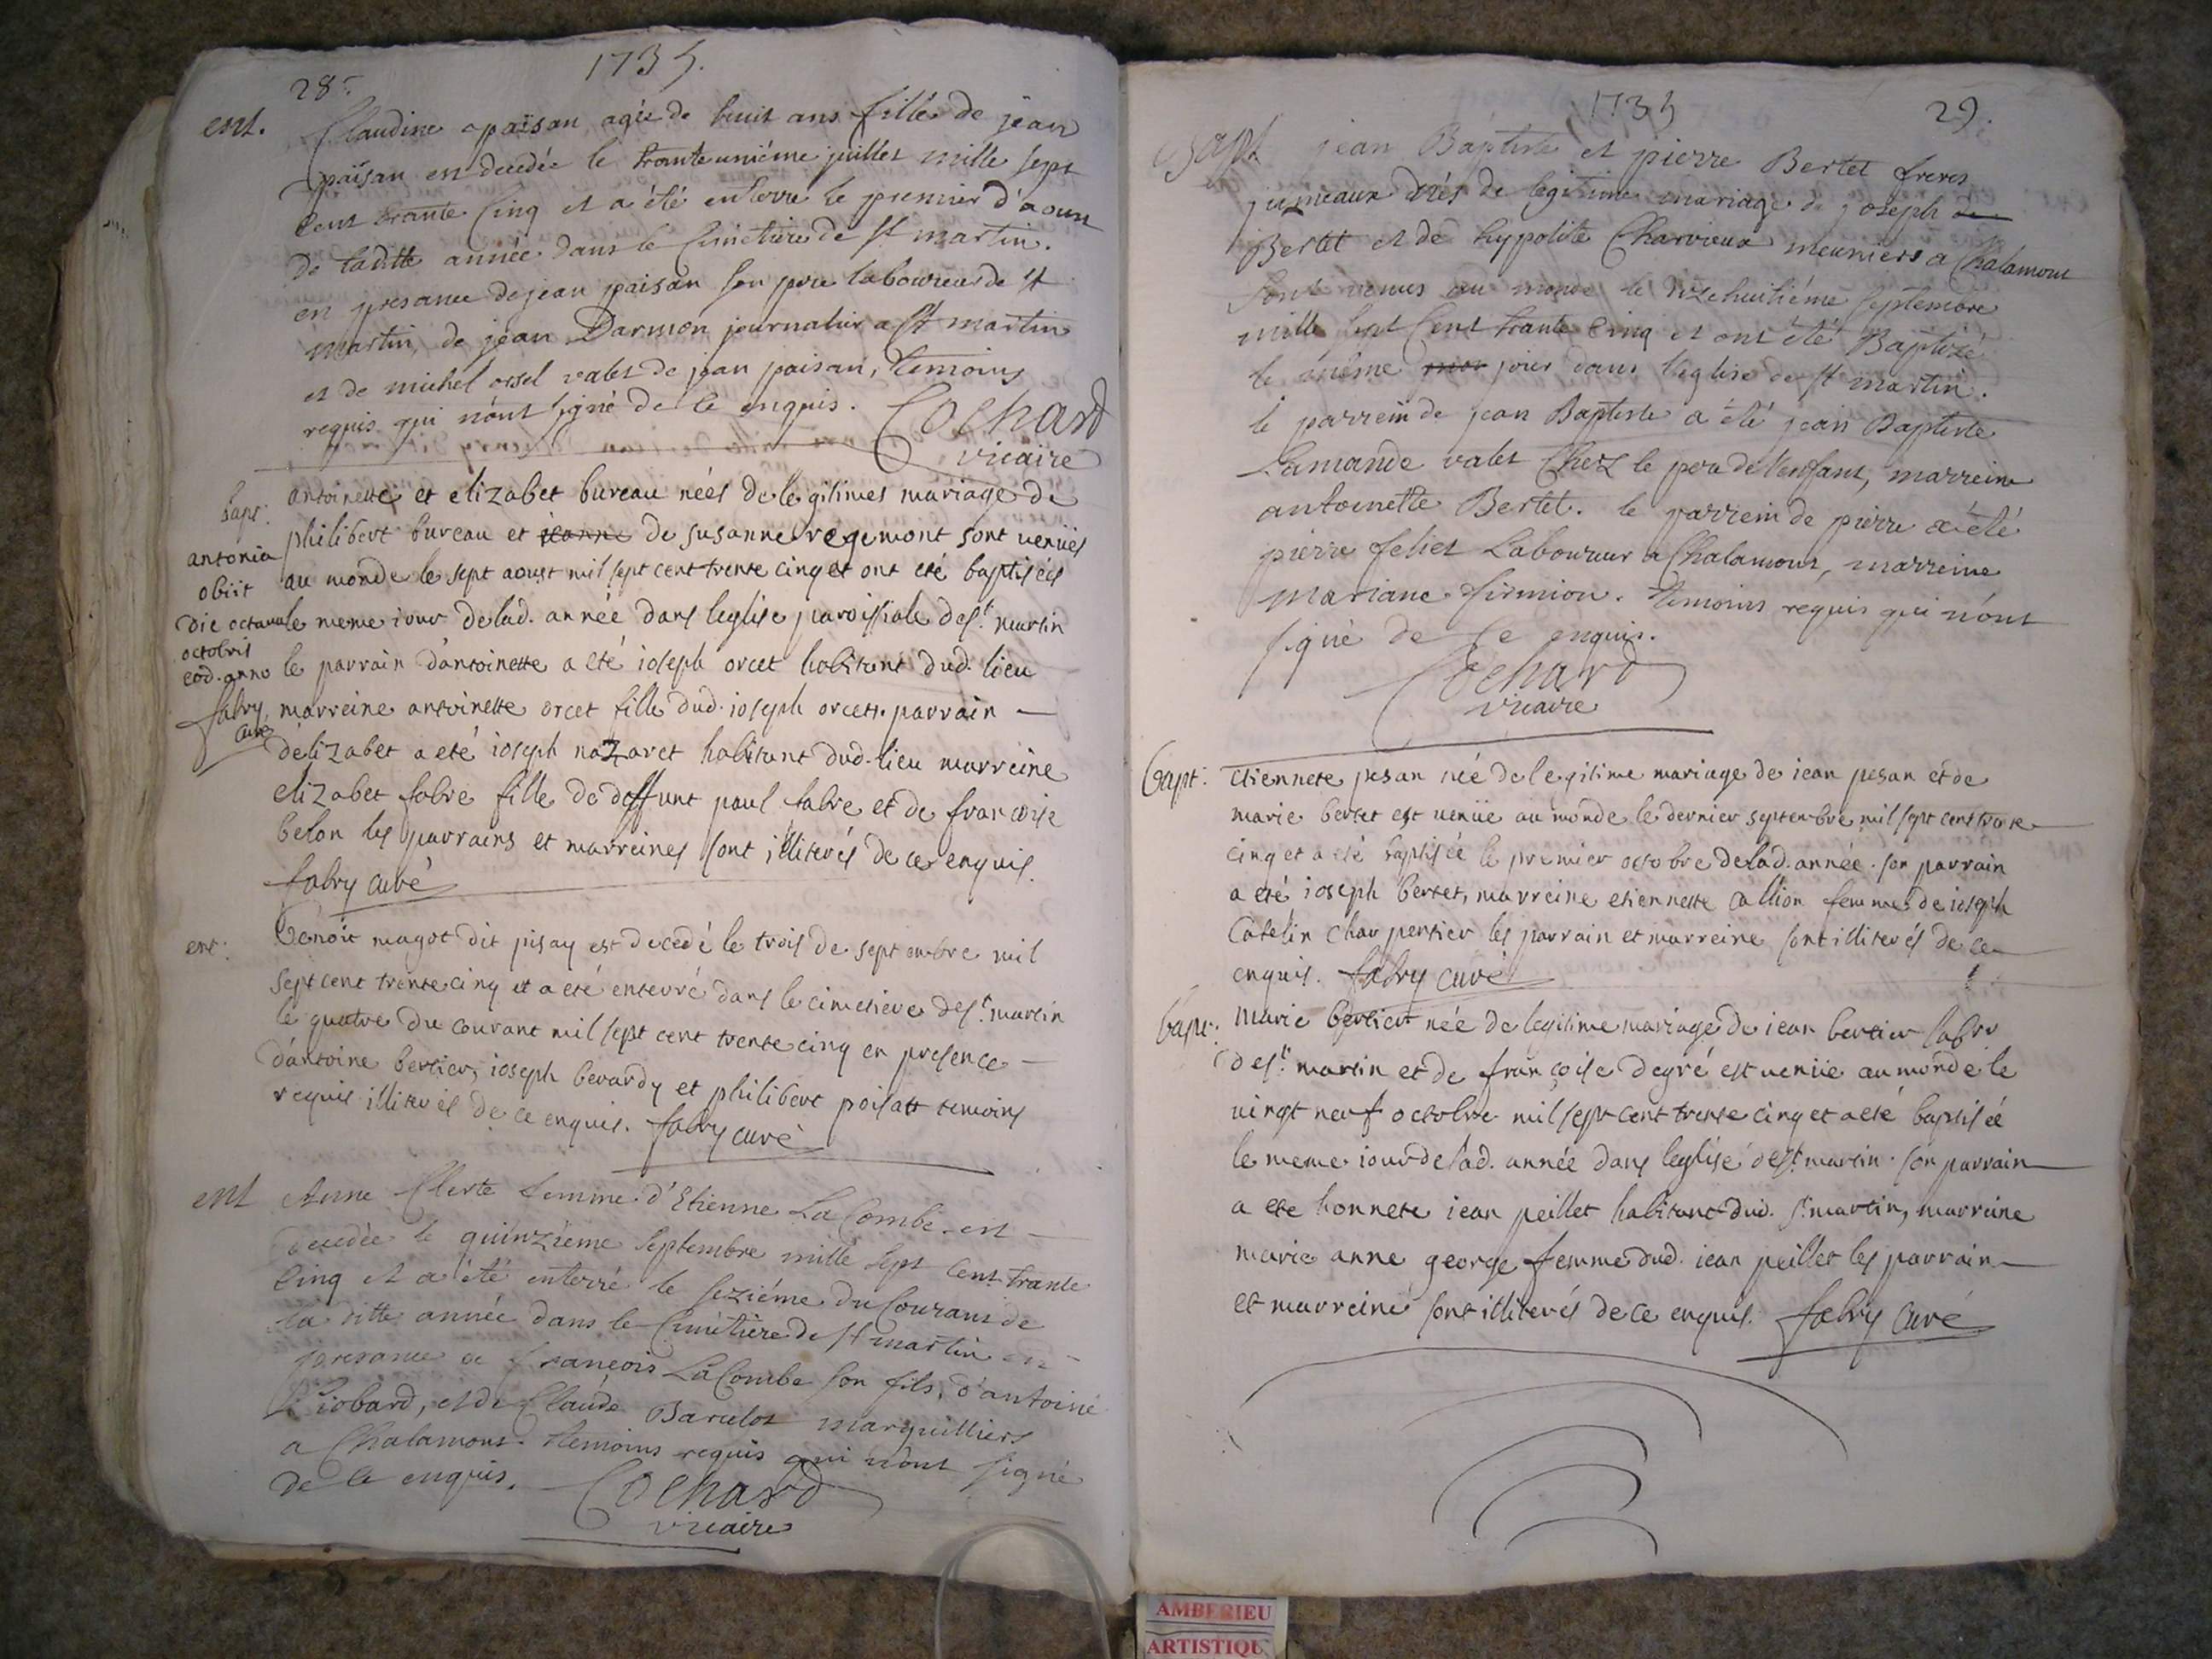 28.
1735.
ent. Claudine païsan agée de huit ans fille de jean
païsan est decedée le tranteuniéme juillet mille sept
Cent trante Cinq et a été enterré le premier d'aoust
de laditte année dans le Cimetiere de st martin.
en presance de jean paisan son pere laboureur de st
martin, de jean Darmon journalier a st martin
et de michel orsel valet de jean paisan, temoins
requis qui n'ont signé de ce enquis. Cochard
vicaire
bapt: antoinette et elizabet bureau néés de legitimes mariage de
philibert bureau et jeanne de susanne regemont sont venües
au monde le sept aoust mil sept cent trente cinq et ont eté baptisées
le meme iour de lad. année dans leglise paroissiale de st. martin
le parrain dantoinette a eté ioseph orcet habitant dud. lieu
marreine antoinette orcet fille dud. ioseph orcet. parrain
délizabet a eté ioseph nazaret habitant dud. lieu marreine
elizabet fabre fille de deffunt paul fabre et de francoise
belon les parrains et marreines sont illiterés de ce enquis.
fabry curé
antonia
obiit
die octava
octobris
eod. anno
fabry
curé
ent: Benoit magot dit pisay est decedé le trois de septembre mil
sept cent trente cinq et a eté enterré dans le cimetiere de st. martin
le quatre du courant mil sept cent trente cinq en presence
dantoine bertier, ioseph berardy et philibert poisatt temoins
requis illiterés de ce enquis. fabry curé
ent Anne Clerte femme d'Etienne La Combe est
decedée le quinziéme septembre mille sept Cent trante
Cinq et a été enterré le seziéme du Courant de
la ditte année dans le Cimetiere de st martin en
presance de françois La Combe son fils, d'antoine
Piobard, et de Claude Barulot marguilliers
a Chalamont. temoins requis qui n'ont signé
de ce enquis. Cochard
vicaire
1735
29.
Bapt. jean Baptiste et pierre Bertet freres
jumeaux nés de legitime mariage de joseph de
Bertet et de hypolite Charvieux meuniers a Chalamont
sont venus au monde le dizehuitiéme septembre
mille sept Cent trante Cinq et ont été Baptizé
le même jour dans leglise de st martin.
le parrein de jean Baptiste a été jean Baptiste
Lamande valet Chez le pere de l'enfant, marreine
antoinette Bertet. le parrein de pierre a été
pierre feliet Laboureur a Chalamont, marreine
mariane firmion. temoins requis qui n'ont
signé de ce enquis.
Cochard
vicaire
bapt: etiennete pesan néé de legitime mariage de iean pesan et de
marie bertet est venüe au monde le dernier septembre mil sept cent trente
cinq et a eté baptiséé le premier octobre de lad. année. son parrain
a eté ioseph bertet, marreine etiennette Callion femme de ioseph
Catelin charpentier les parrain et marreine sont illiterés de ce
enquis. fabry curé
bapt: marie bertier néé de legitime mariage de iean bertier labr
de st. martin et de françoise degré est venüe au monde le
vingt neuf octobre mil sept cent trente cinq et a eté baptiséé
le meme iour de lad. année dans leglise de st. martin. son parrain
a ete honnete iean peillet habitant dud. st. martin, marreine
marie anne george femme dud. iean peillet les parrain
et marreine sont illiterés de ce enquis. fabry curé
AMBERIEU
ARTISTIQU